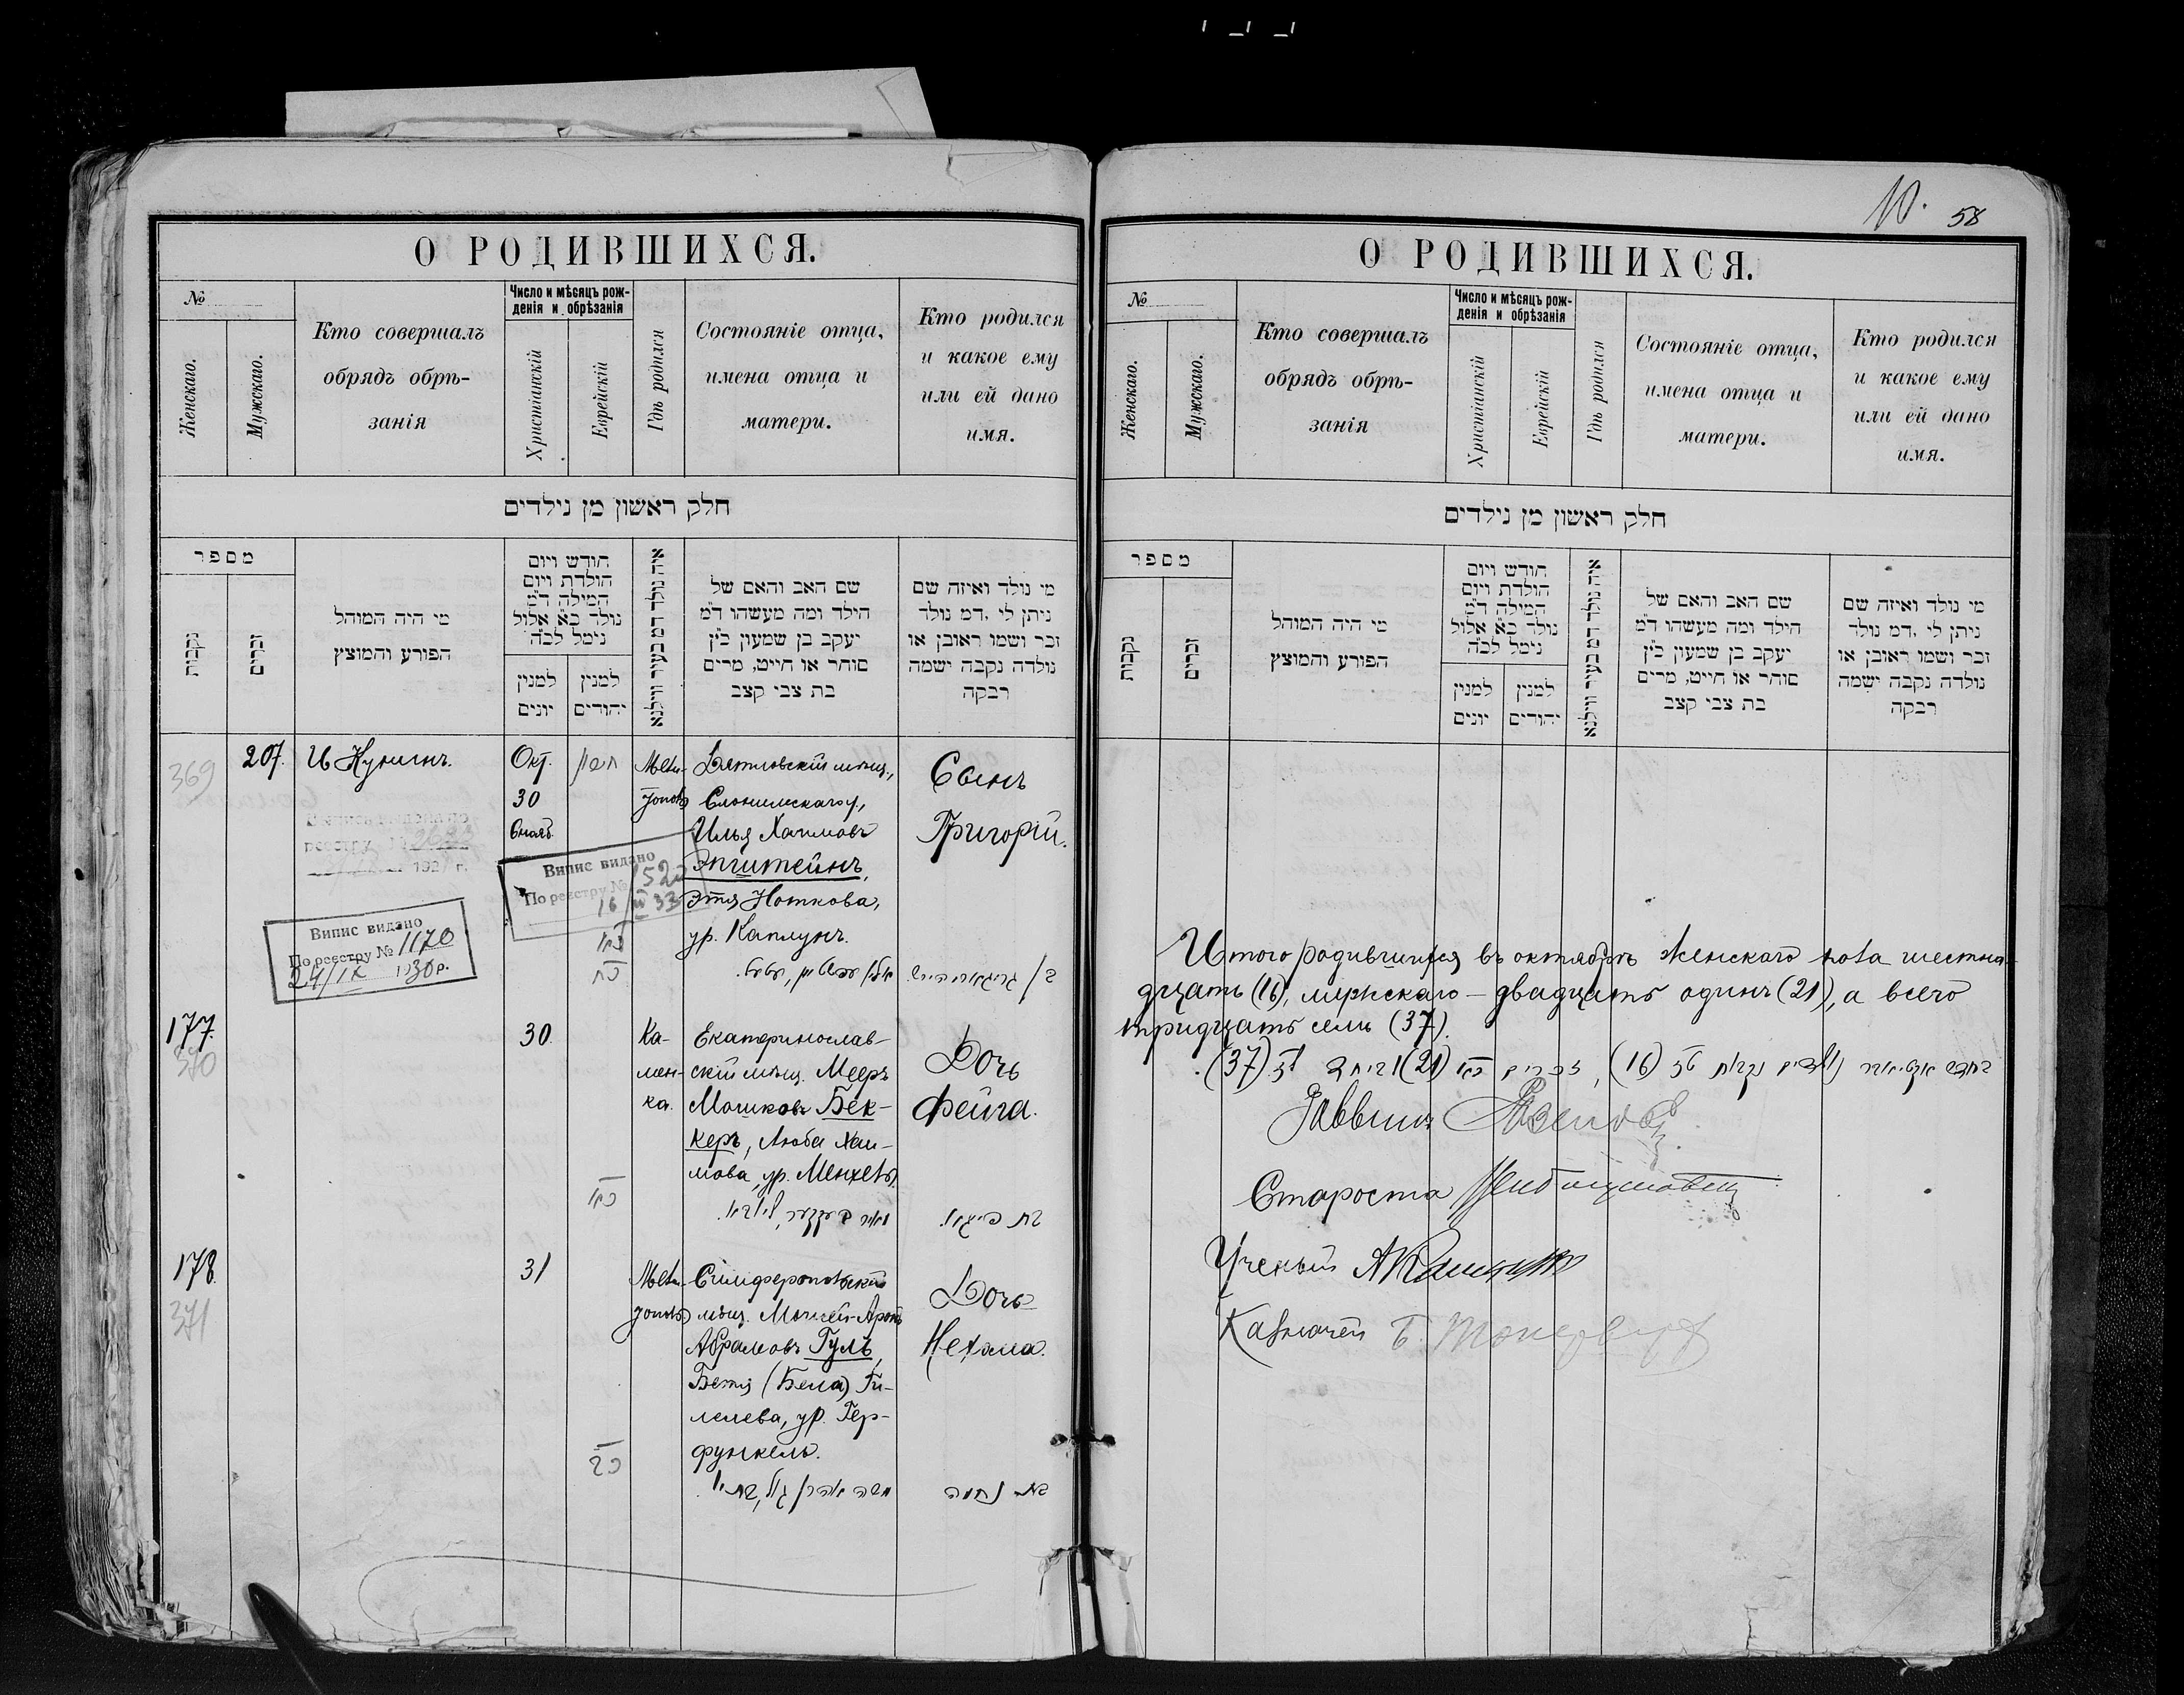 О РОДИВШИХСЯ.
№
Женскаго.
Мужскаго.
Кто совершалъ
обрядъ обрѣ-
занія
Число и мѣсяцъ рож-
денія и обрѣзанія
Христіанскій
Еврейскій
Гдѣ родился
Состояніе отца,
имена отца и
матери.
Кто родился
и какое ему
или ей дано
имя.
חלק ראשון מן נילדים
מספר
נקבות
זכרים
מי היה המוהל
הפורע והמוצץ
חודש ויום
הולדת ויום
המילה ד״מ
נולד כ״א אלול
נימל לכ״ה
למנין
יונים
למנין
יהודים
איה נולד דמ בעיר ווילנא
שם האב והאם של
הילד ומה מעשהו ד״מ
יעקב בן שמעון כ״ץ
סוחר או חייט, מרים
בת צבי קצב
מי נולד ואיזה שם
ניתן לי .דמ נולד
זכר ושמו ראובן או
נולדה נקבה ישמה
רבקה
369
207.
И Кунинъ.
Окт.
30
חשון
Дятловскій мѣщ.,
Слонимскаго у.,
Илья Хаимовъ
Эпштейнъ,
Этя Ноткова,
ур. Каплунъ.
Сынъ
Григорій.
реестру № 2683
192 г.
Випис видано
По реестру № 1520
16/III 33
Випис видано
По реестру № 1170
24/IX 1930 р.
177.
370
30.
Ка-
мен-
ка.
Екатеринослав-
скій мѣщ. Мееръ
Мошковъ Бек-
керъ, Люба Хаи-
мова, ур.
Дочь
Фейга.
בת פייגא.
178.
371
31
Симферопольскій
мѣщ. Аронъ
Абрамовъ Гуль,
Бетя (Бела) Ги-
лелева, ур. Гер-
функель.
משה אהרן גול,
Дочь
Нехама.
בת נחמה
10.
58
О РОДИВШИХСЯ.
№
Женскаго.
Мужскаго.
Кто совершалъ
обрядъ обрѣ-
занія
Число и мѣсяцъ рож-
денія и обрѣзанія
Христіанскій
Еврейскій
Гдѣ родился
Состояніе отца,
имена отца и
матери.
Кто родился
и какое ему
или ей дано
имя.
חלק ראשון מן נילדים
מספר
נקבות
זכרים
מי היה המוהל
הפורע והמוצץ
חודש ויום
הולדת ויום
המילה ד״מ
נולד כ״א אלול
נימל לכ״ה
למנין
יונים
למנין
יהודים
איה נולד דמ בעיר ווילנא
שם האב והאם של
הילד ומה מעשהו ד״מ
יעקב בן שמעון כ״ץ
סוחר או חייט, מרים
בת צבי קצב
מי נולד ואיזה שם
ניתן לי .דמ נולד
זכר ושמו ראובן או
נולדה נקבה ישמה
רבקה
Итого родившихся въ октябрѣ женскаго пола шестна-
дцать (16), мужскаго – двадцать одинъ (21), а всего
тридцать семь (37).
בחדש נולדים נקבות (16), זכרים (21) (37).
Раввинъ
Староста
Ученый
Казначей